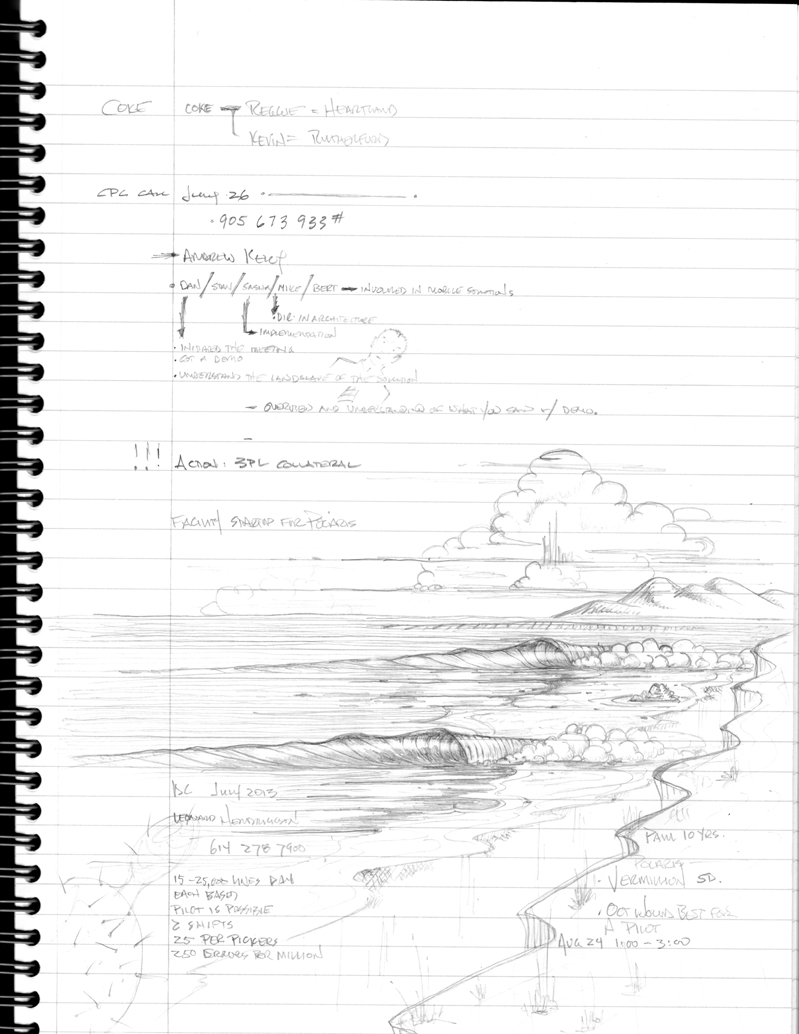 COKE COKE REGGIE = HEARTLAND
KEVIN = RUTHERFORD
CPG CALL July 26
905 673 933#
ANDREW KELLY
DAN / STAN / SASHA / MIKE / BERT INVOLVED IN MOBILE SOLUTIONS
DIR. IN ARCHITECTURE
IMPLEMENTATION
INITIATED THE MEETING
GOT A DEMO
UNDERSTAND THE LANDSCAPE OF THE SOLUTION
OVERVIEW AND UNDERSTANDING OF WHAT YOU SAID w/ DEMO.
!!! ACTION: 3PL COLLATERAL
FACILITY STARTUP FOR POLARIS
BC July 2013
LEONARD HENDRICKSON
614 278 7900
15-25,000 LINES DAY
EACH BASED
PILOT IS POSSIBLE
2 SHIFTS
25 PER PICKERS
250 ERRORS PER MILLION
PAUL 10 YRS.
POLARIS
VERMILLION SD.
OCT WOULD BEST FOR
A PILOT
AUG 24 1:00 - 3:00